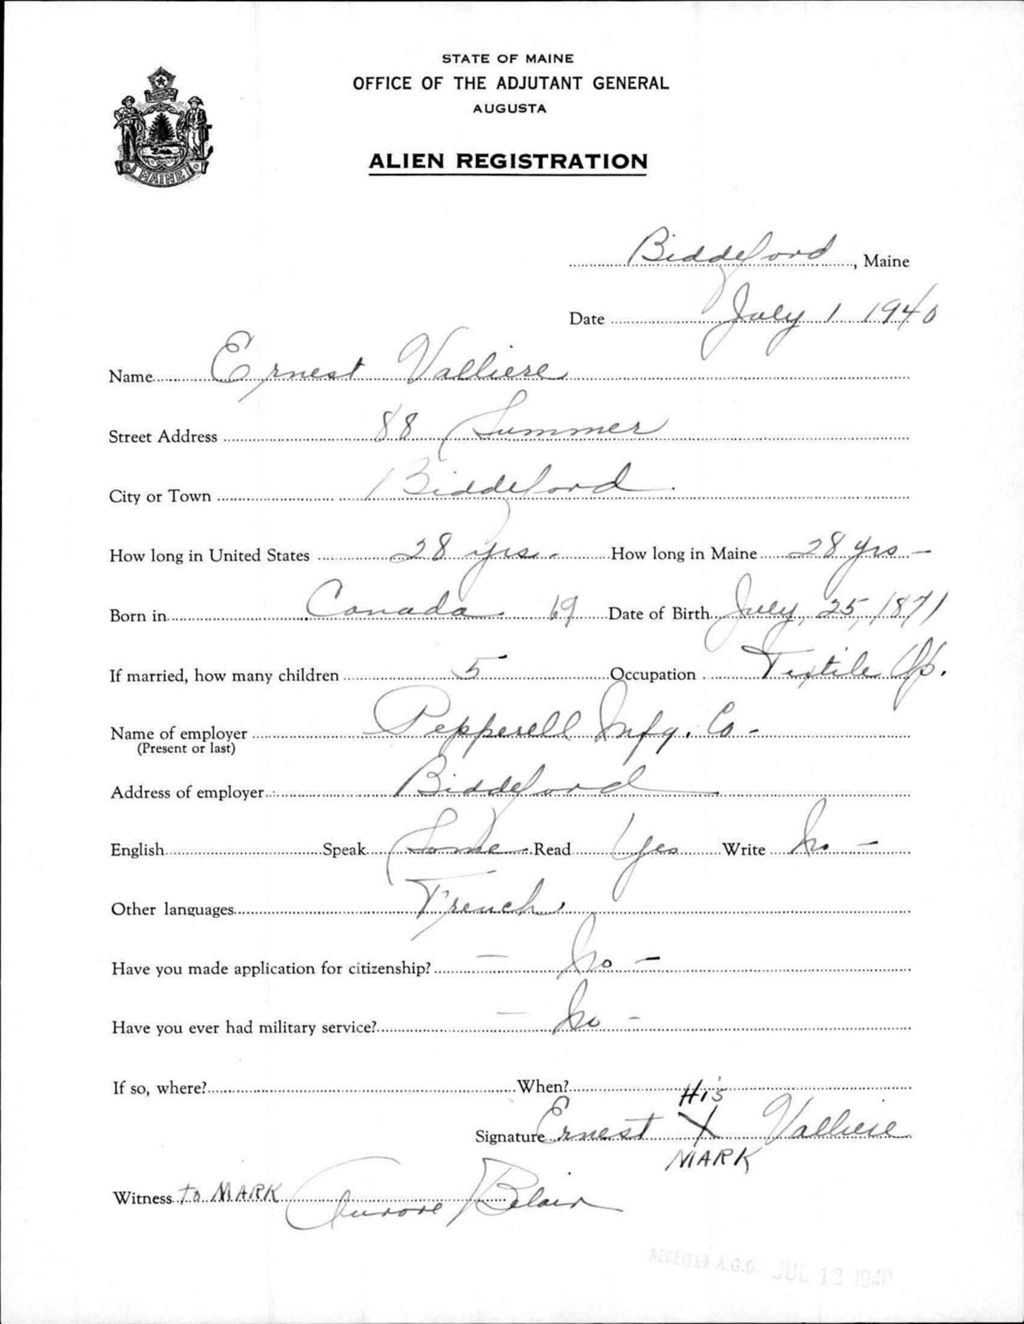 STATE OF MAINE
OFFICE OF THE ADJUTANT GENERAL
AUGUSTA
MAINE
ALIEN REGISTRATION
Biddeford, Maine
Date July 1 1940
Name Ernest Valliere
Street Address 88 Summer
City or Town Biddeford.
How long in United States 28 yrs. How long in Maine 28 yrs -
Born in Canada 69 Date of Birth July, 25, 1871
If married, how many children 5 Occupation Textile Op.
Name of employer Pepperell Mfg. Co -
(Present or last)
Address of employer Biddeford
English Speak Some Read Yes Write No -
Other languages French
Have you made application for citizenship? - No -
Have you ever had military service? - No -
If so, where? When?
His
Signature Ernest X Valliere
MARK
Witness to MARK Aurore Blair
RECEIVED A.G.O. JUL 12 1940